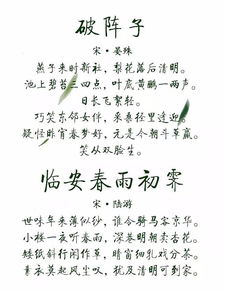 破阵子
宋·晏殊
燕子来时新社，梨花落后清明。
池上碧苔三四点，叶底黄鹂一两声。
日长飞絮轻。
巧笑东邻女伴，采桑径里逢迎。
疑怪昨宵春梦好，元是今朝斗草赢。
笑从双脸生。
临安春雨初霁
宋·陆游
世味年来薄似纱，谁令骑马客京华。
小楼一夜听春雨，深巷明朝卖杏花。
矮纸斜行闲作草，晴窗细乳戏分茶。
素衣莫起风尘叹，犹及清明可到家。